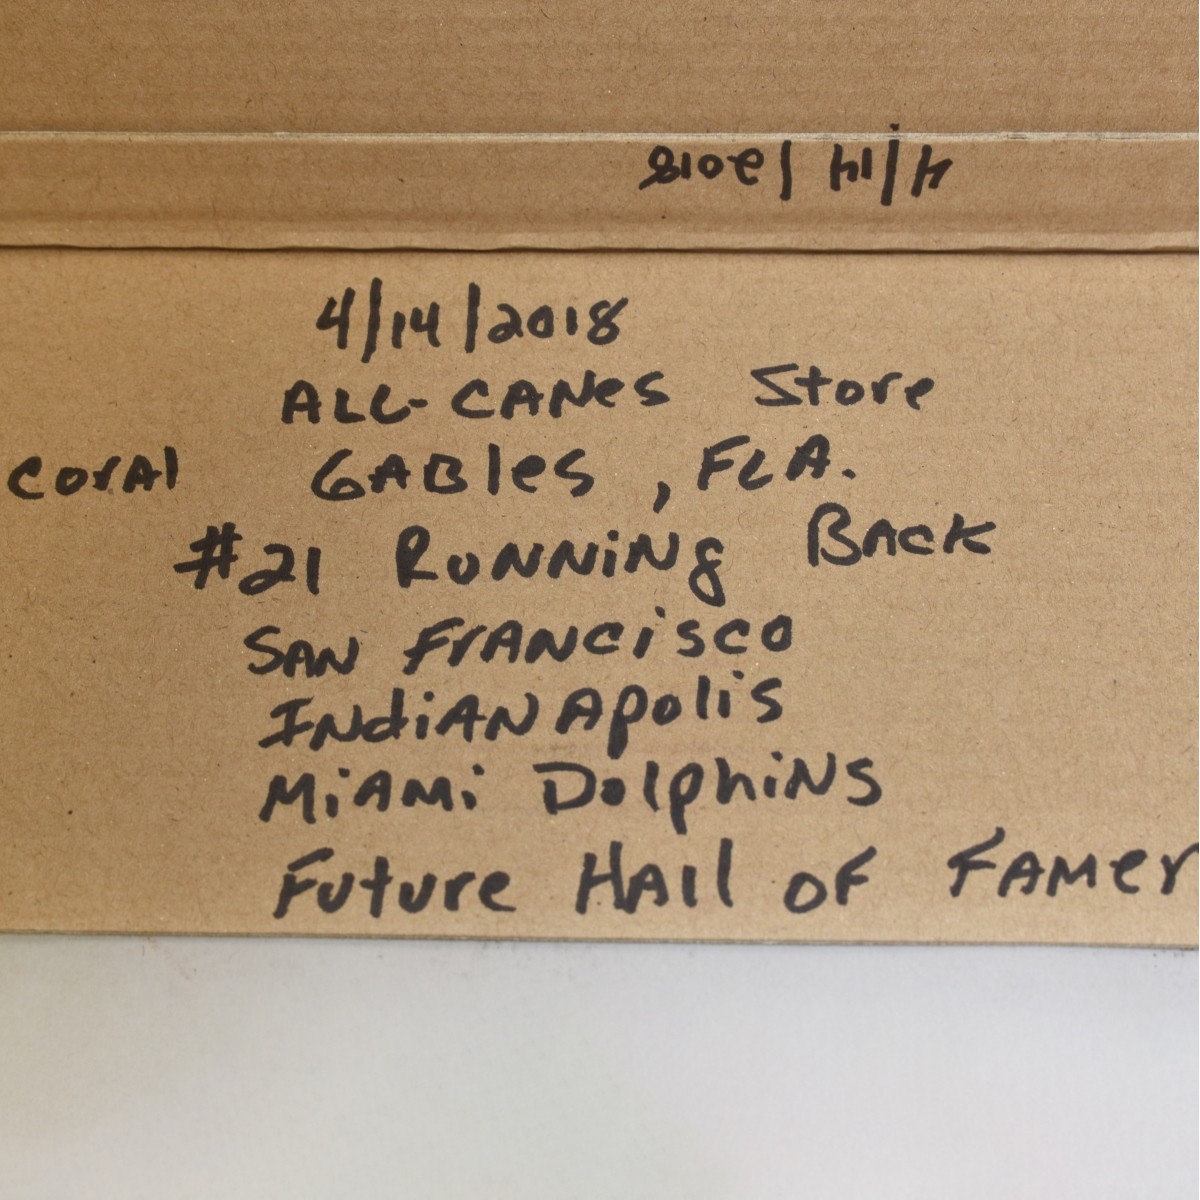 4/14/2018
4/14/2018
ALL-CANes Store
corAl GABles, FLA.
#21 RuNNiNg BAck
SAN FrANcisco
INdiANApolis
MiAMi DolphiNs
Future HAll oF FAMer